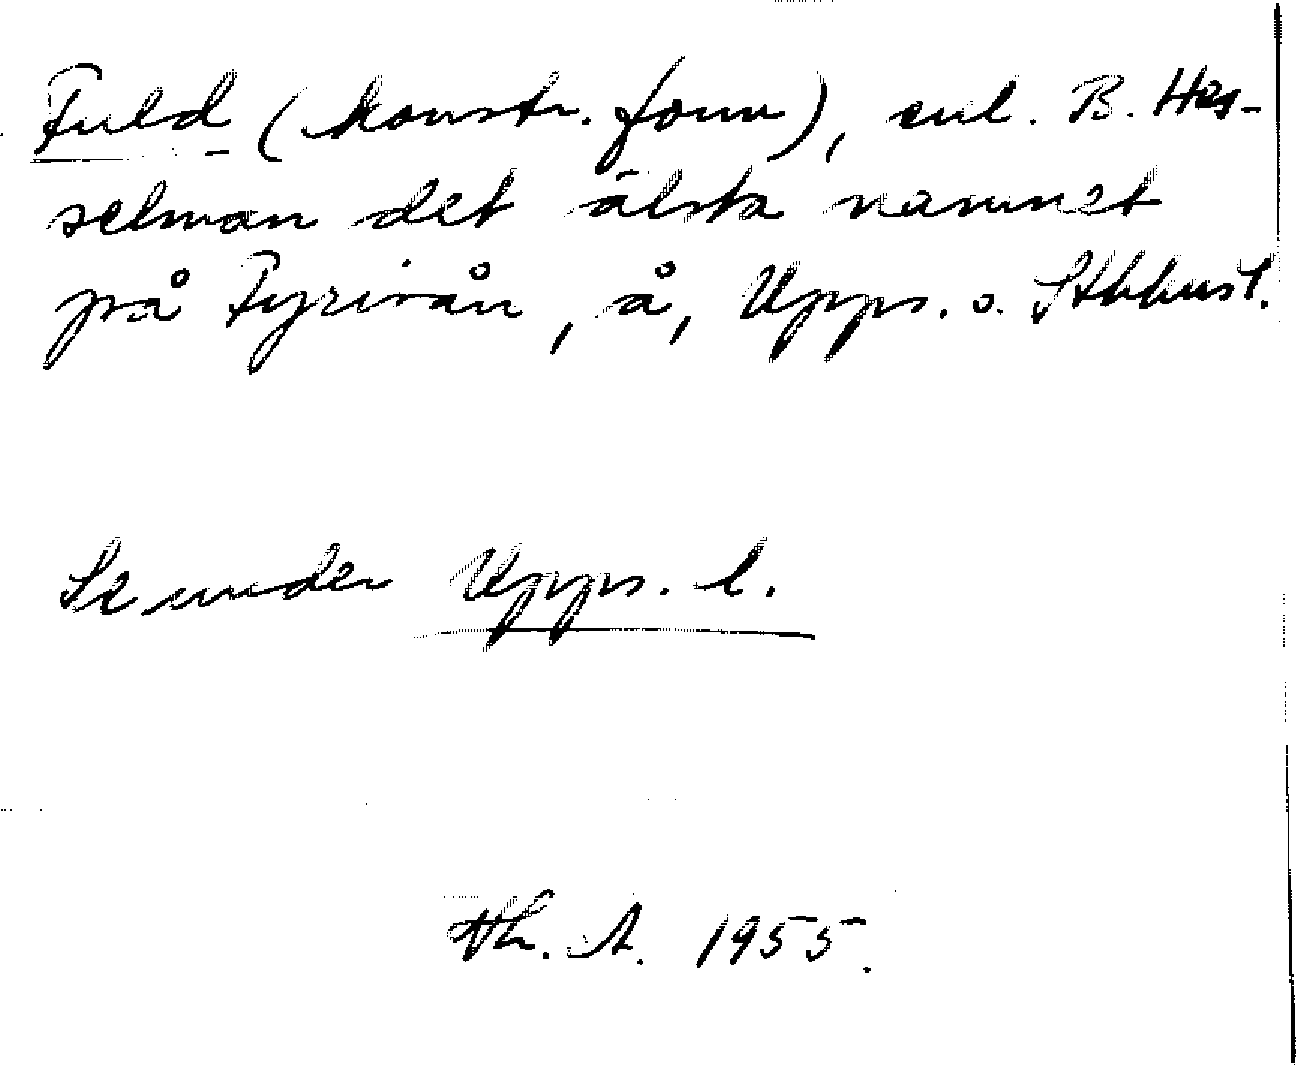 Fuld (konstr. form), enl. B. Hes-
selman det älsta namnet
på Fyrisån, å, Upps. o. Sthlms l.
Se under Upps. l.
Th. A. 1955.